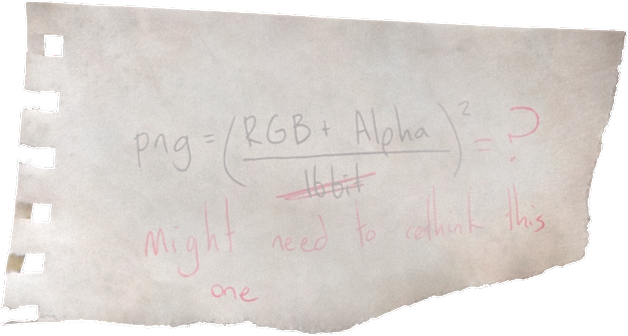 png = (RGB + Alpha / 16bit)² = ?
Might need to rethink this
one